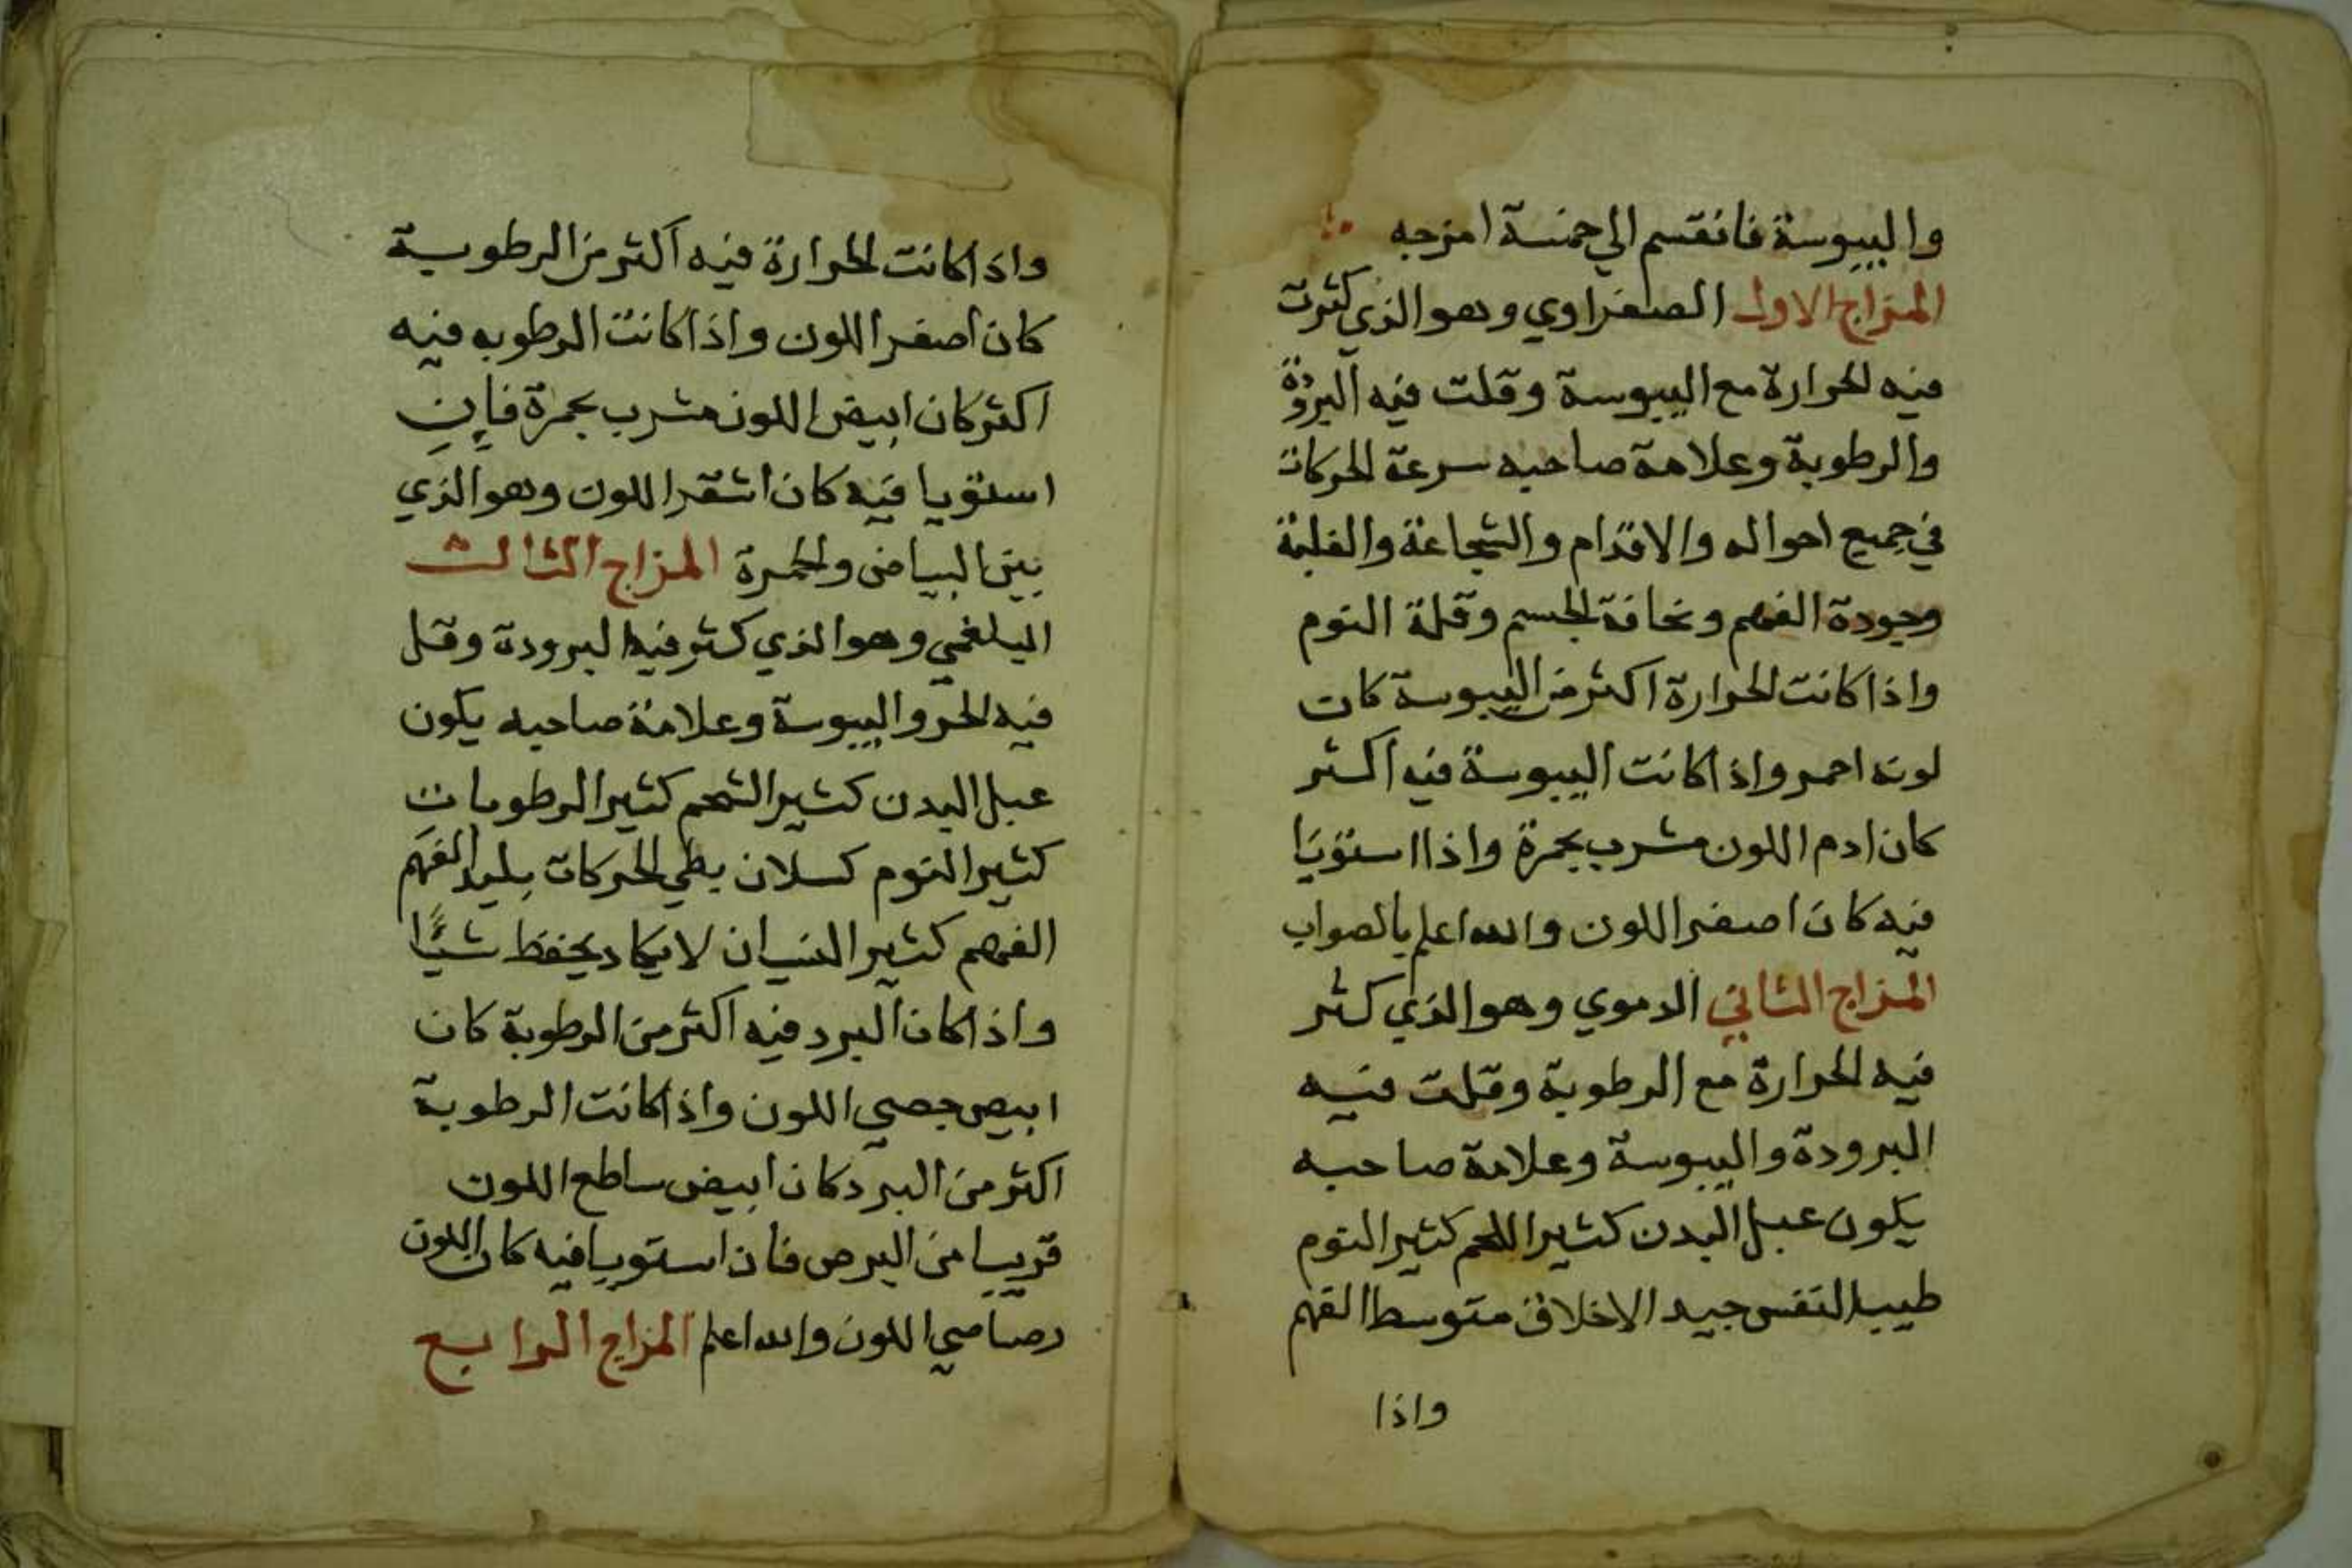 واليبوسة فانقسم الي خمسة امزجه
المزاج الاول الصفراوي وهو الذي كثرت
فيه الحرارة مع اليبوسة وقلت فيه البرودة
والرطوبة وعلامة صاحبه سرعة الحركات
في جميع احواله والاقدام والشجاعة والغلبة
وجودة الفهم ونحافة الجسم وقلة النوم
واذا كانت الحرارة اكثر من اليبوسة كان
لونه احمر واذا كانت اليبوسة فيه اكثر
كان ادم اللون مشرب بحمرة واذا استويا
فيه كان اصفر اللون والله اعلم بالصواب
المزاج الثاني الدموي وهو الذي كثر
فيه الحرارة مع الرطوبة وقلت فيه
البرودة واليبوسة وعلامة صاحبه
يكون عبل البدن كثير اللحم كثير النوم
طيب النفس جيد الاخلاق متوسط الفهم
واذا
واذا كانت الحرارة فيه اكثر من الرطوبة
كان اصفر اللون واذا كانت الرطوبه فيه
اكثر كان ابيض اللون مشرب بحمرة فإن
استويا فيه كان اشقر اللون وهو الذي
بين البياض والحمرة المزاج الثالث
البلغمي وهو الذي كثر فيه البرودة وقل
فيه الحر واليبوسة وعلامة صاحبه يكون
عبل البدن كثير الشحم كثير الرطوبات
كثير النوم كسلان بطي الحركات بليد الفهم
الفهم كثير النسيان لا يكاد يحفظ شيًّا
واذا كان البرد فيه اكثر من الرطوبة كان
ابيض جصي اللون واذا كانت الرطوبة
اكثر من البرد كان ابيض ساطع اللون
قريبا من البرص فان استويا فيه كان اللون
رصاصي اللون والله اعلم المزاج الرابع